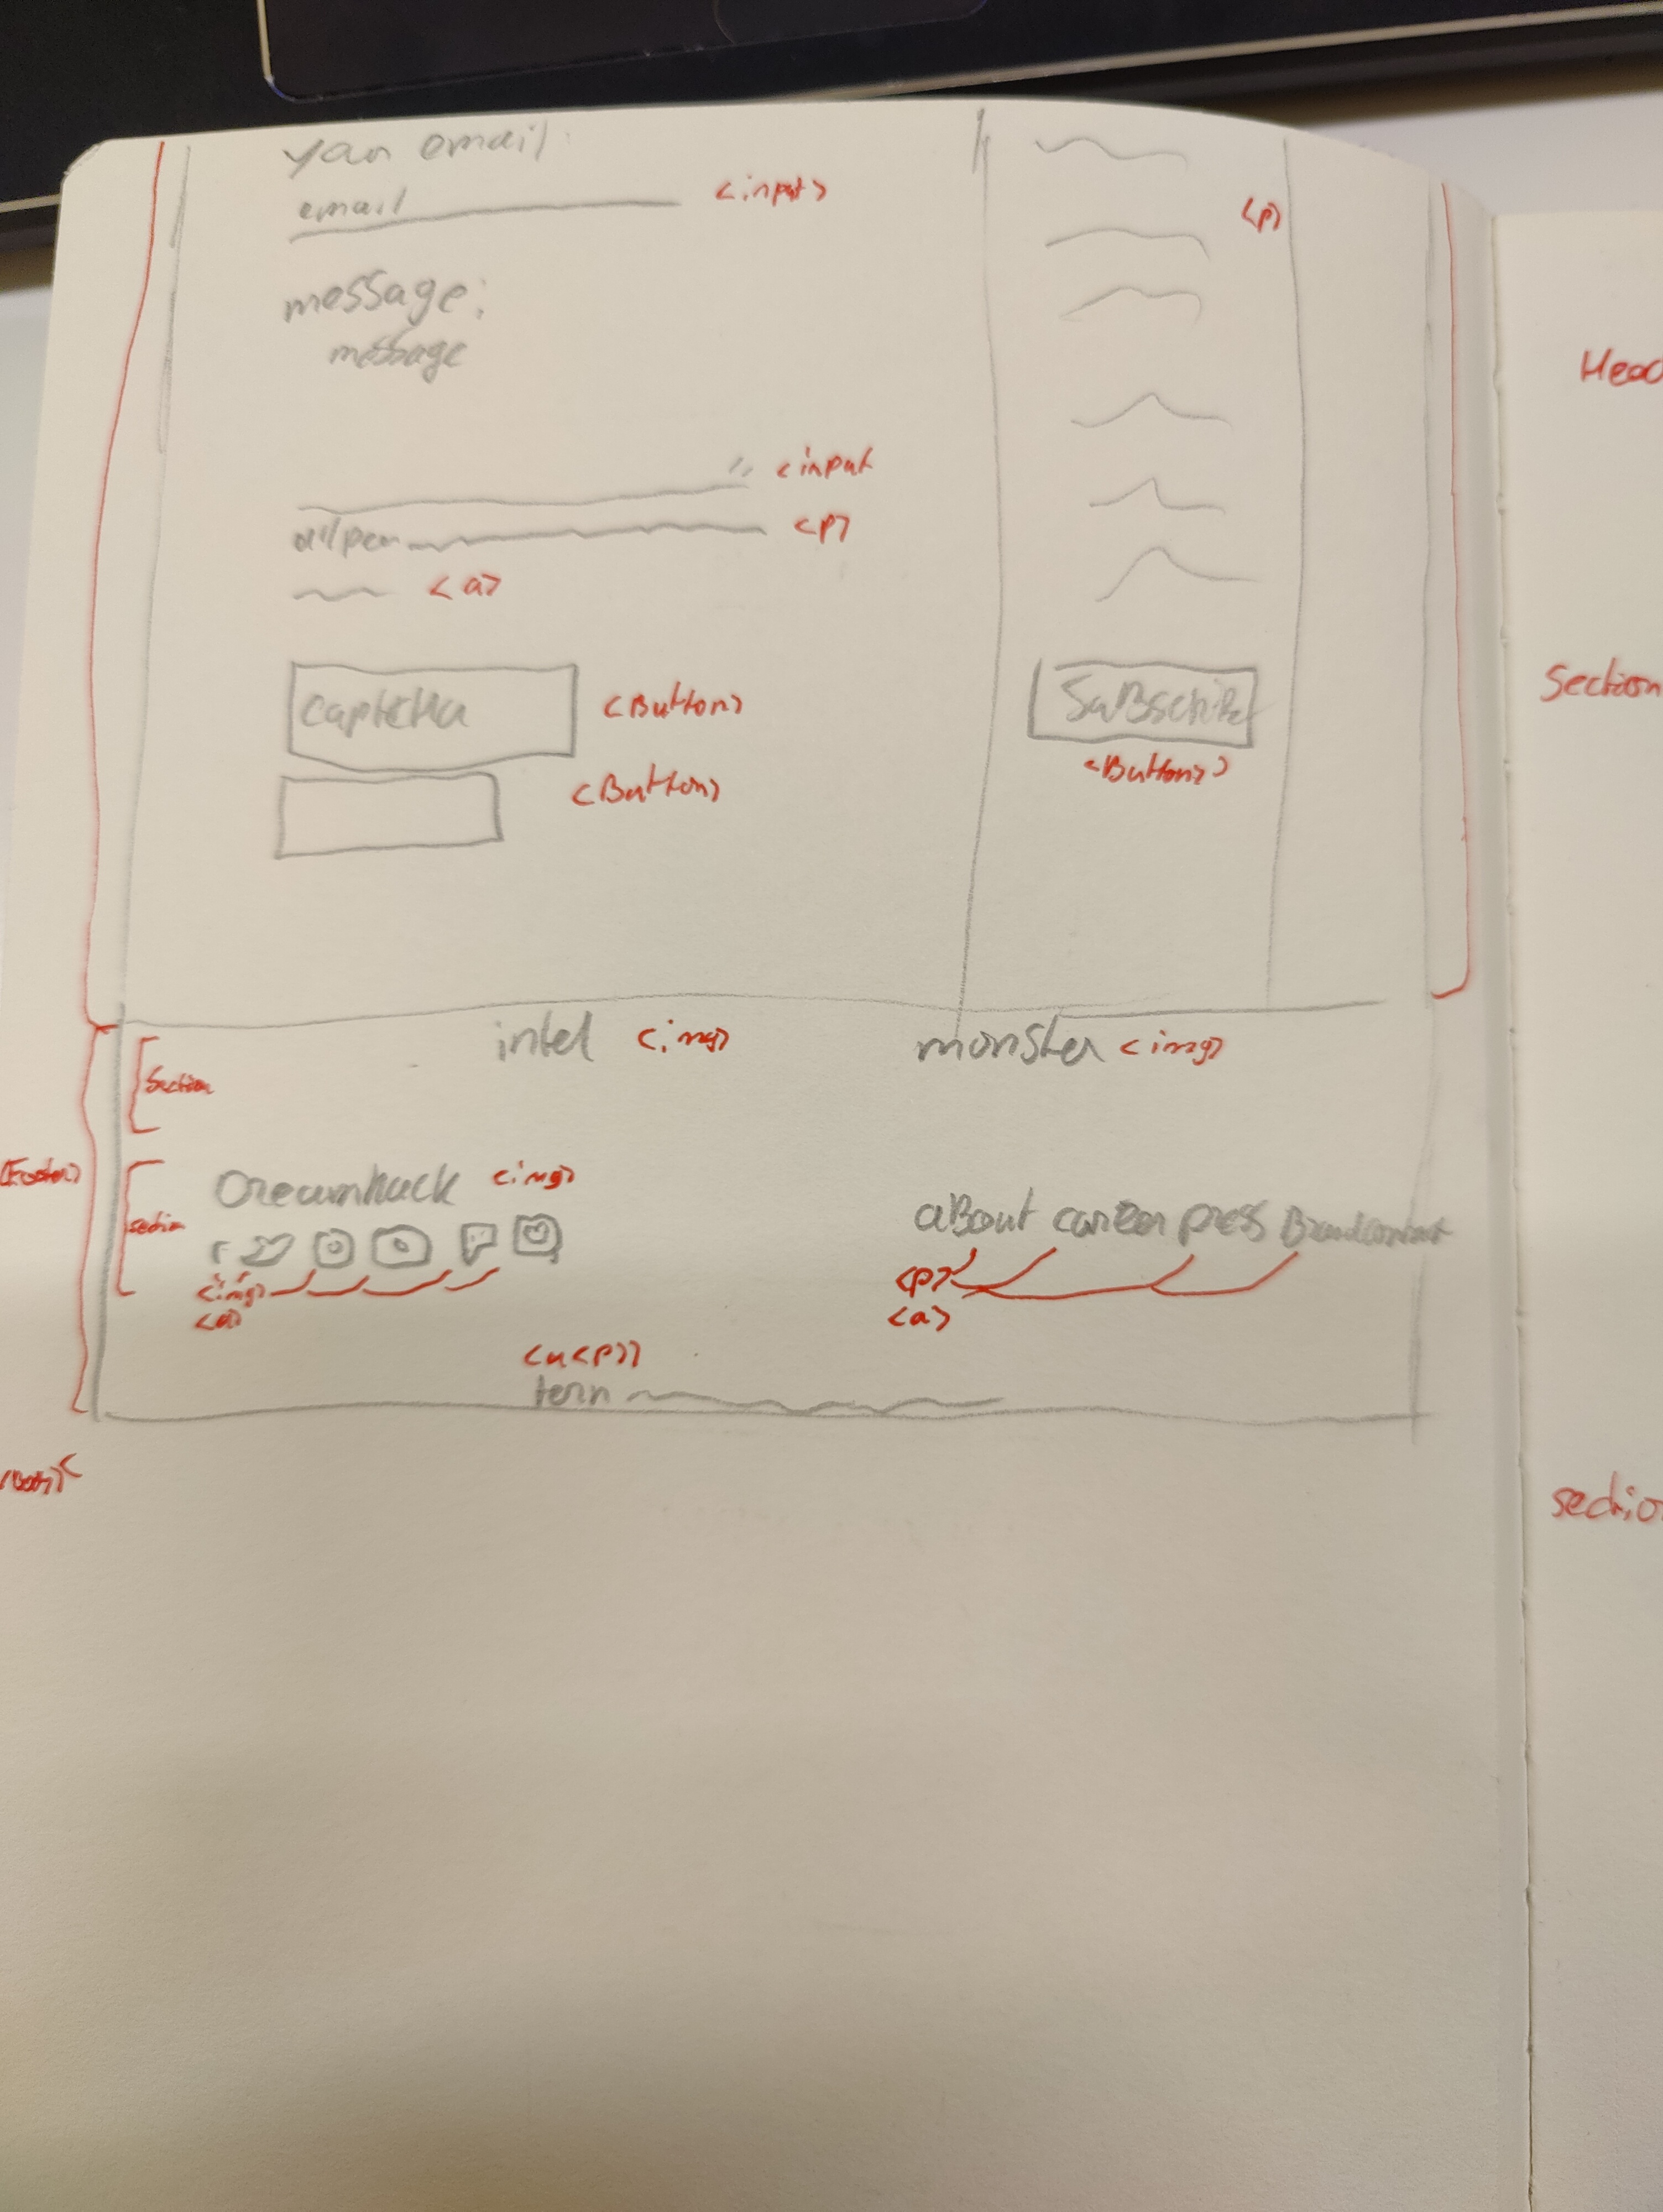 your email:
email <input>
<p>
message:
message
<input
<p>
<a>
captcha <Button>
<Button>
SuBscribe
<Button>
Head
Section
intel <img> monster <img>
Section
<Footer>
Dreamhack <img>
section
aBout career press Brand contact
<img>
<a>
<p>
<a>
<a<p>>
term
sectio